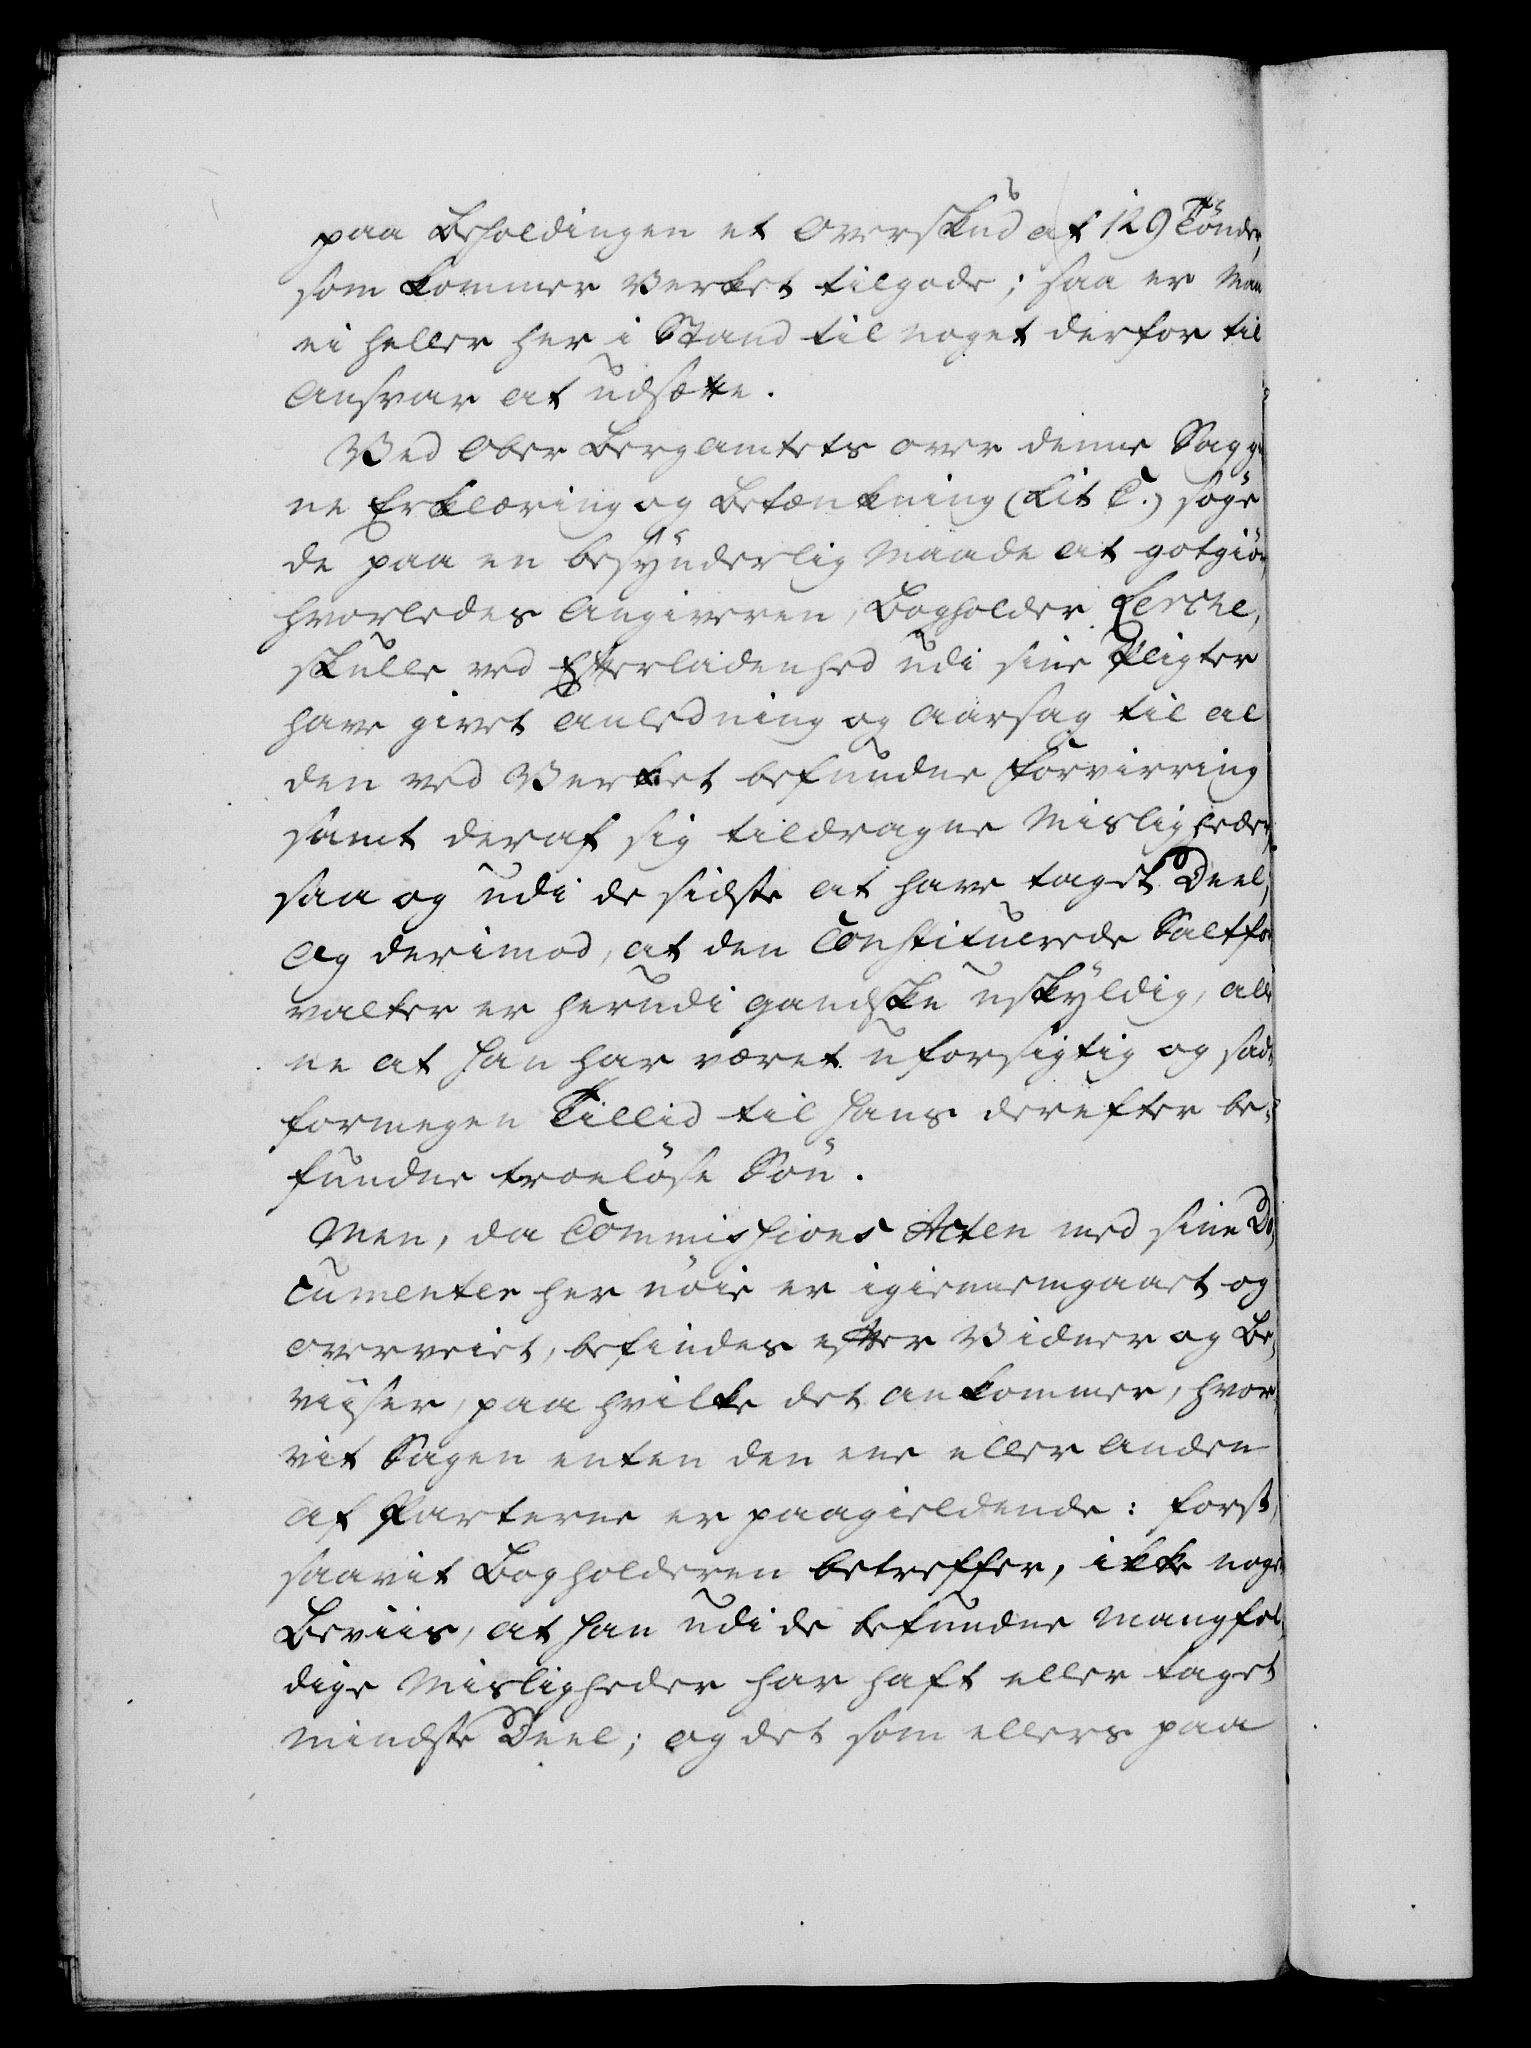 paa Beholdingen et Overskud af 129 Tönder,
som kommer Verket tilgode; saa er Man
ei heller her i Stand til noget derfor til
Ansvar at udsætte.
Ved Ober Bergamtets over denne Sag
ne Erklæring og Betænkning (Lit C.) søge
de paa en besynderlig Maade at gotgiöre,
hvorledes Angiveren, Bogholder Lerche,
skulle ved Efterladenhed udi sine Pligter
have givet Anledning og Aarsag til al
den ved Verket befundne Forvirring
samt deraf sig tildragne Misligheder,
saa og udi de sidste at have taget Deel,
og derimod, at den Constituerede Saltfor
valter er herudi gandske uskyldig, alle
ne at han har været uforsigtig og sadt
formegen Tillid til hans derefter be-
fundne troelöse Sön.
Men, da Commissions Acten med sine Do,
cumenter her nöie er igiennemgaaet og
overveiet, befindes efter Vidner og Be,
viiser, paa hvilke det ankommer, hvor,
vit Sagen enten den ene eller anden
af Parterne er paagieldende: først,
saavit Bogholderen betreffer, ikke noget
Beviis, at han udi de befundne Mangfol,
dige Misligheder har haft eller taget
mindste Deel; og det som ellers paa